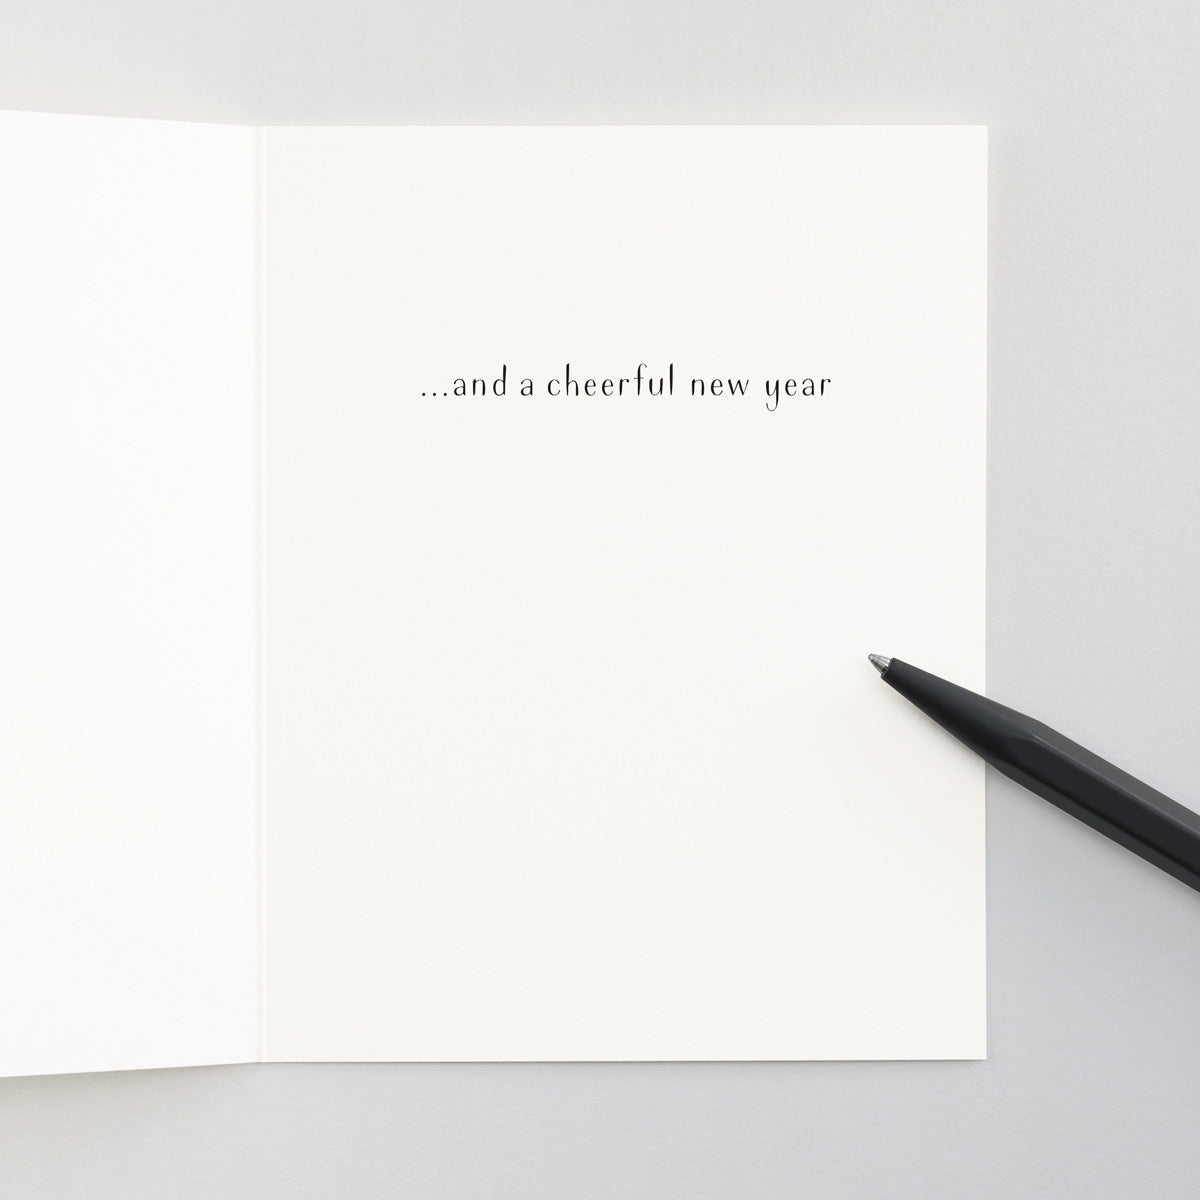 ...and a cheerful new year